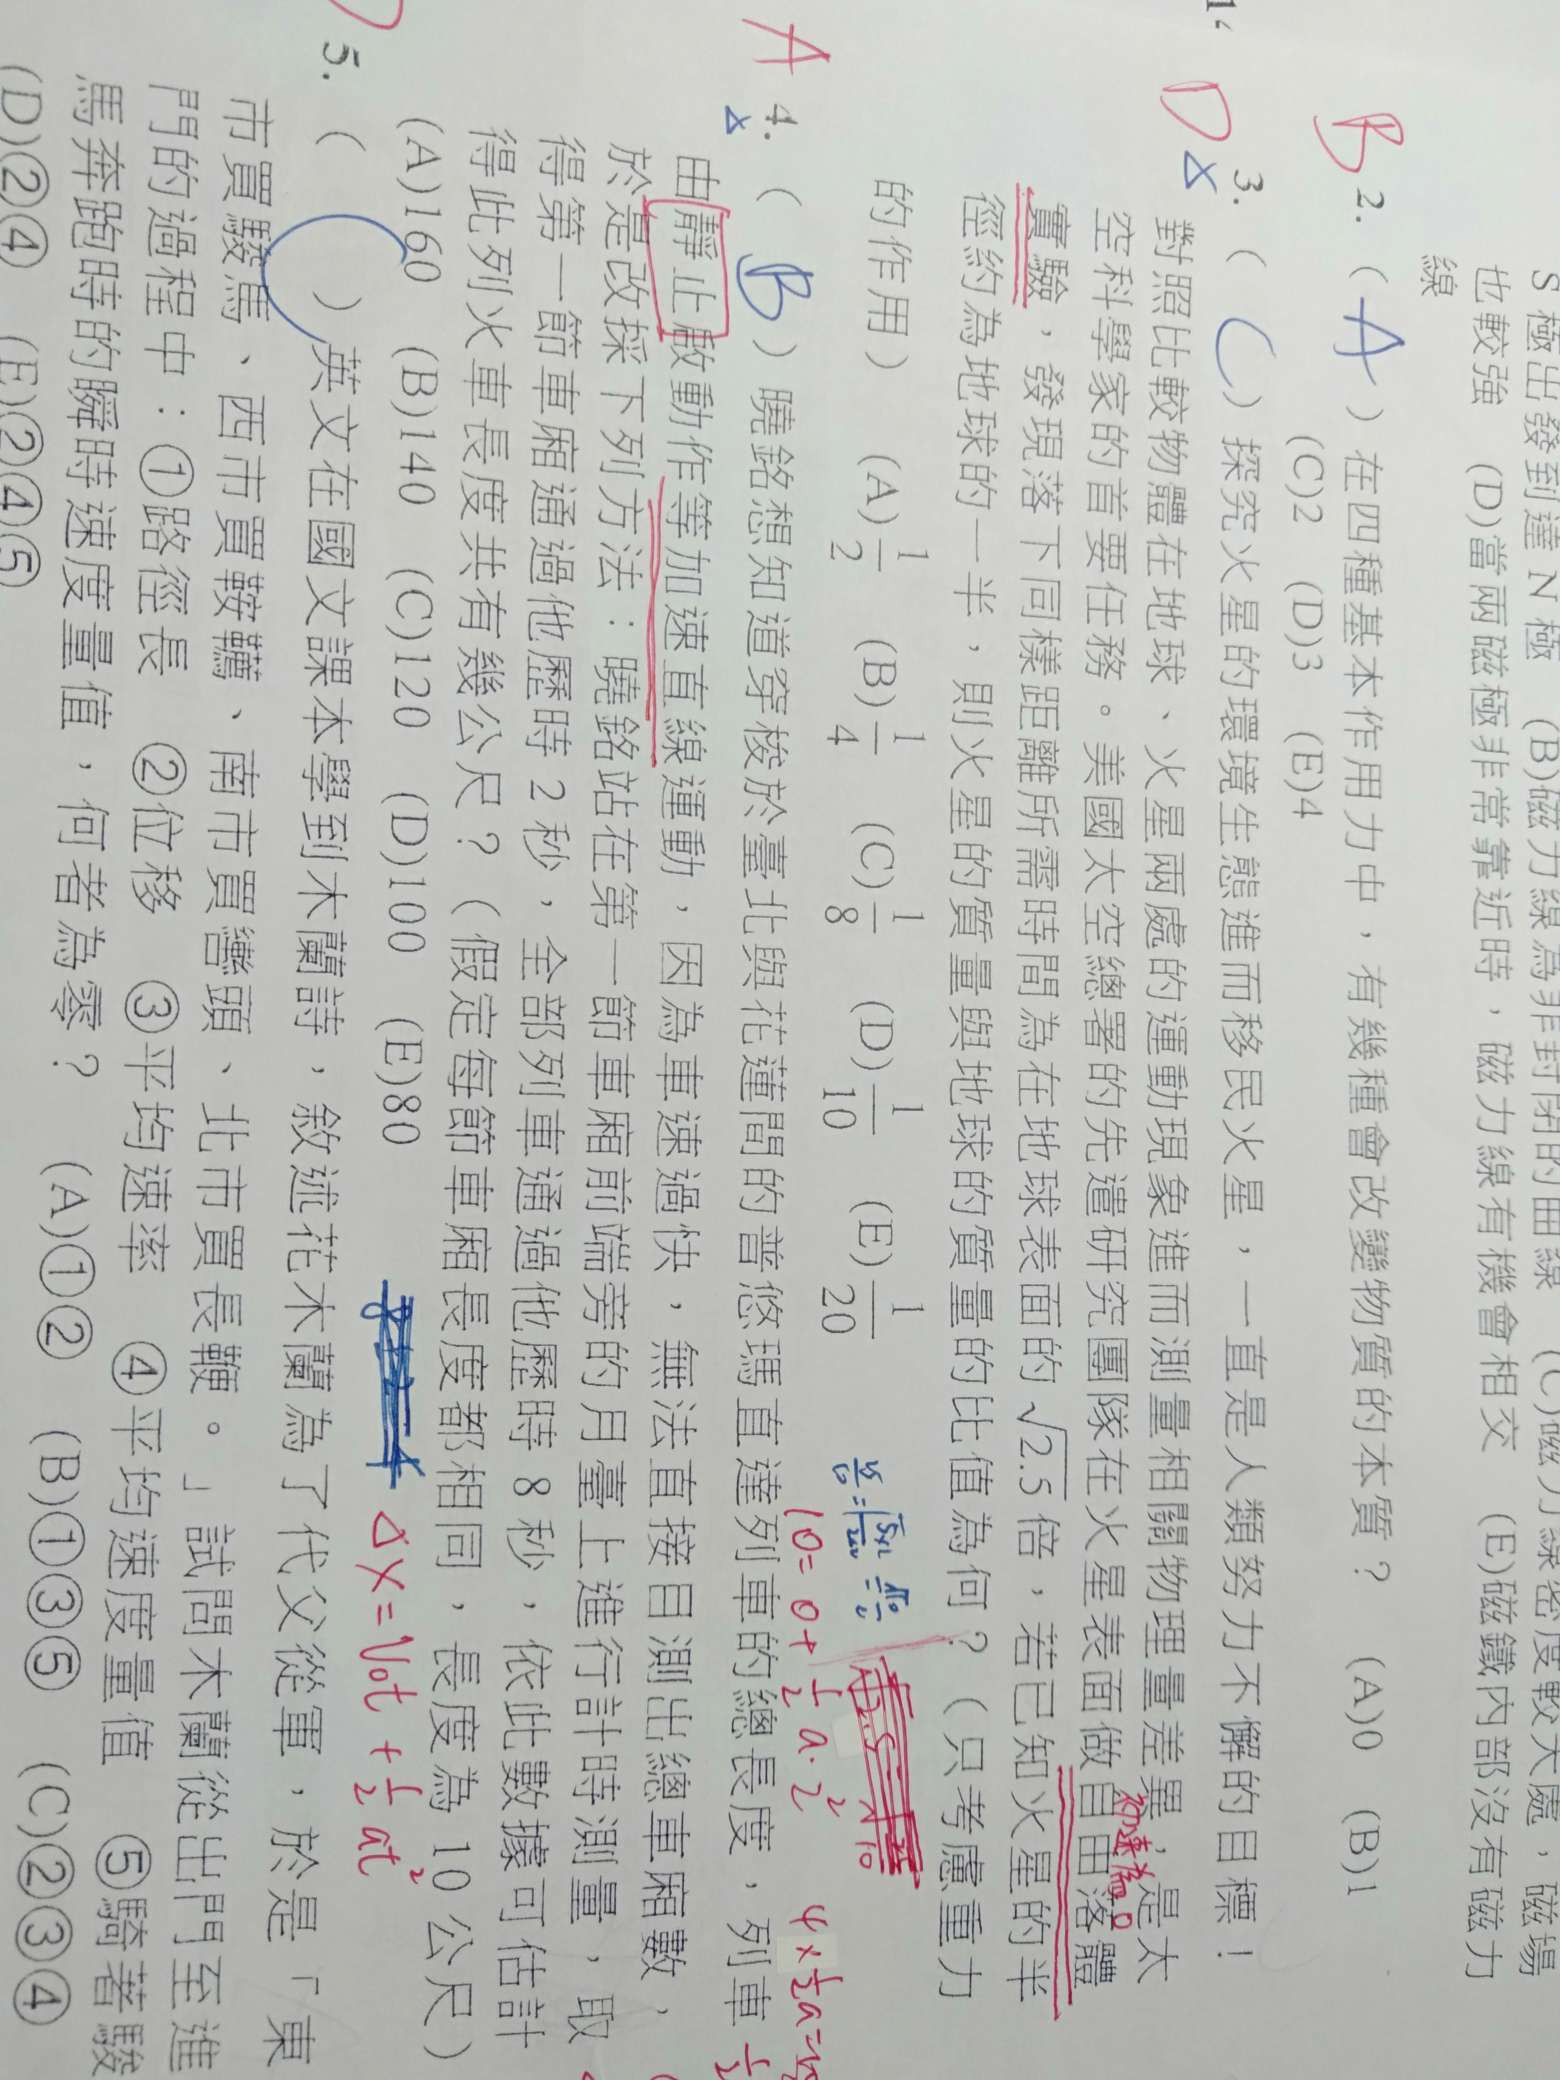 S極出發到達 N 極 (B)磁力線為非封閉的曲線 (C)磁力線密度較大處，磁場
也較強 (D)當兩磁極非常靠近時，磁力線有機會相交 (E)磁鐵內部沒有磁力
線
B 2. ( A ) 在四種基本作用力中，有幾種會改變物質的本質？ (A)0 (B)1
(C)2 (D)3 (E)4
D 3. ( C ) 探究火星的環境生態進而移民火星，一直是人類努力不懈的目標！
對照比較物體在地球、火星兩處的運動現象進而測量相關物理量差異，是太
初速為0
空科學家的首要任務。美國太空總署的先遣研究團隊在火星表面做自由落體
實驗，發現落下同樣距離所需時間為在地球表面的 √2.5 倍，若已知火星的半
徑約為地球的一半，則火星的質量與地球的質量的比值為何？（只考慮重力
的作用） (A)1/2 (B)1/4 (C)1/8 (D)1/10 (E)1/20
10=0+1/2 a·2²
4×1/2a=10
A 4. ( B ) 曉銘想知道穿梭於臺北與花蓮間的普悠瑪直達列車的總長度，列車
由靜止啟動作等加速直線運動，因為車速過快，無法直接目測出總車廂數，
於是改採下列方法：曉銘站在第一節車廂前端旁的月臺上進行計時測量，取
得第一節車廂通過他歷時 2 秒，全部列車通過他歷時 8 秒，依此數據可估計
得此列火車長度共有幾公尺？（假定每節車廂長度都相同，長度為 10 公尺）
(A)160 (B)140 (C)120 (D)100 (E)80
ΔX=V₀t+1/2 at²
5. ( ) 英文在國文課本學到木蘭詩，敘述花木蘭為了代父從軍，於是「東
市買駿馬、西市買鞍韉、南市買轡頭、北市買長鞭。」試問木蘭從出門至進
門的過程中：①路徑長 ②位移 ③平均速率 ④平均速度量值 ⑤騎著駿
馬奔跑時的瞬時速度量值，何者為零？ (A)①② (B)①③⑤ (C)②③④
(D)②④ (E)②④⑤